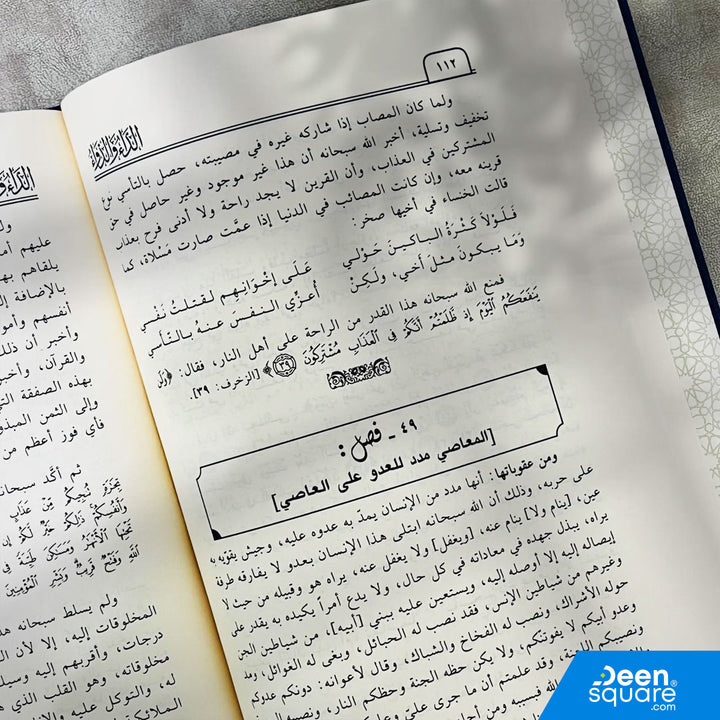 ١١٢
الداء والدواء
ولما كان المصاب إذا شاركه غيره في مصيبته، حصل بالتأسي نوع
تخفيف وتسلية، أخبر الله سبحانه أن هذا غير موجود وغير حاصل في حق
المشتركين في العذاب، وأن القرين لا يجد راحة ولا أدنى فرح بعذاب
قرينه معه، وإن كانت المصائب في الدنيا إذا عمَّت صارت مَسْلاة، كما
قالت الخنساء في أخيها صخر:
فَلَوْلاَ كَثْرَةُ البـاكـيـنَ حَـوْلـي عَلَـى إخْوَانِهِـم لَقَـتَـلـتُ نَفْـسي
وَمَا يـبكـونَ مـثـلَ أخـي، ولَـكِـنْ أُعـزِّي الـنـفـسَ عـنـهُ بـالـتـأسي
فمنع الله سبحانه هذا القدر من الراحة على أهل النار، فقال: ﴿وَلَن
يَنفَعَكُمُ ٱلْيَوْمَ إِذ ظَّلَمْتُمْ أَنَّكُمْ فِى ٱلْعَذَابِ مُشْتَرِكُونَ ٣٩﴾ [الزخرف: ٣٩].
٤٩ - فصل:
[المعاصي مدد للعدو على العاصي]
ومن عقوباتها: أنها مدد من الإنسان يمدّ به عدوه عليه، وجيش يقوّيه به
على حربه، وذلك أن الله سبحانه ابتلى هذا الإنسان بعدو لا يفارقه طرفة
عين، [ينام ولا] ينام عنه، [ويغفل] ولا يغفل عنه، يراه هو وقبيله من حيث لا
يراه، يبذل جهده في معاداته في كل حال، ولا يدع أمراً يكيده به يقدر على
إيصاله إليه إلا أوصله إليه، ويستعين عليه ببني [أبيه]، من شياطين الجن
وغيرهم من شياطين الإنس، فقد نصب له الحبائل، وبغى له الغوائل، ومد
حوله الأشراك، ونصب له الفخاخ والشباك، وقال لأعوانه: دونكم عدوكم
وعدو أبيكم لا يفوتنكم، ولا يكن حظه الجنة وحظكم النار، ونصيبه
ونصيبكم اللعنة، وقد علمتم أن ما جرى عليّ
الله فبسببه ومن
الداء
عليهم
يلقاهم
بالإضافة
أنفسهم
وأخبر أن ذلك
والقرآن، وأخبر
بهذه الصفقة
وإلى الثمن
فأي فوز أعظم من
ثم أكّد سبحانه
تِجَٰرَةٍ تُنجِيكُم مِّنْ عَذَابٍ
وَأَنفُسِكُمْ ذَٰلِكُمْ خَيْرٌ لَّكُمْ إِن
تَحْتِهَا ٱلْأَنْهَٰرُ وَمَسَٰكِنَ طَيِّبَةً فِى
ٱللَّهِ وَفَتْحٌ قَرِيبٌ وَبَشِّرِ ٱلْمُؤْمِنِينَ
ولم يسلط سبحانه
المخلوقات إليه، إلا لأن
درجات، وأقربهم إليه
مخلوقاته، وهو القلب الذي
له، والتوكل عليه
Deen
square®
.com